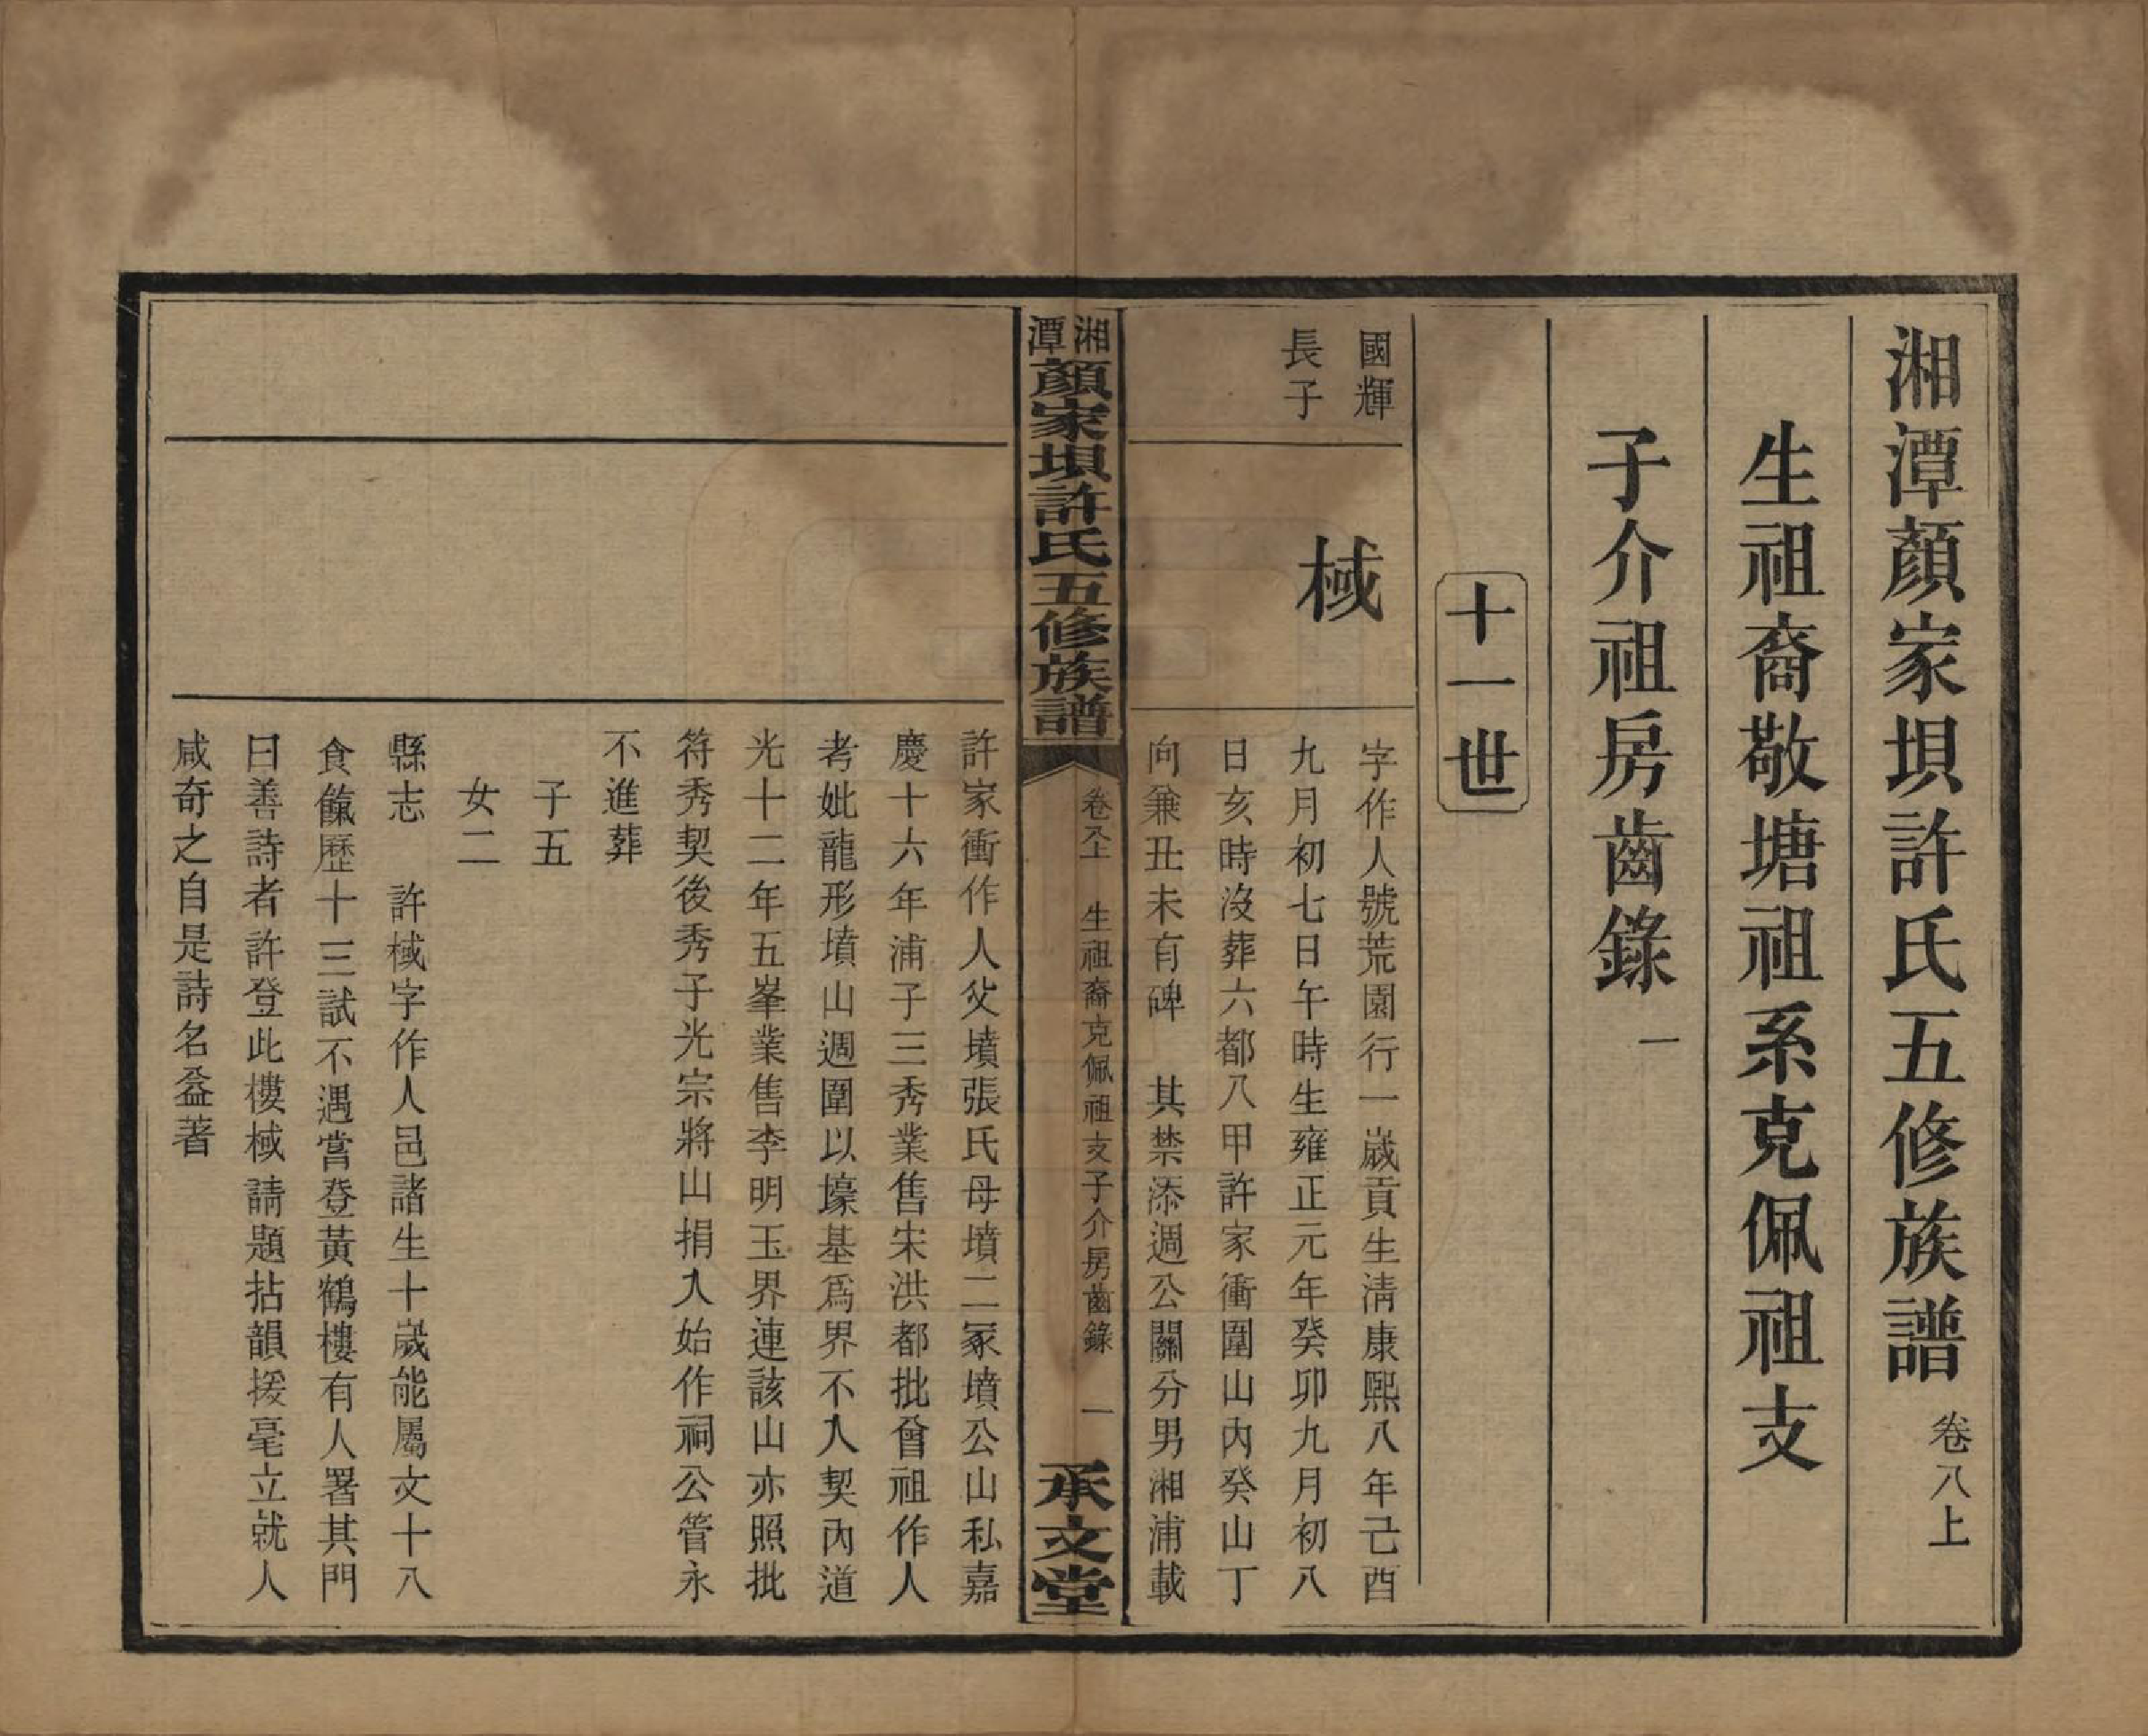 湘潭顏家坝許氏五修族譜 卷八上
生祖裔敬塘祖系克佩祖支
子介祖房齒錄 一
十一世
國輝
長子
棫
字作人號荒園行一歲貢生淸康熙八年己酉
九月初七日午時生雍正元年癸卯九月初八
日亥時沒葬六都八甲許家衝圍山內癸山丁
向兼丑未有碑 其禁添週公關分男湘浦載
湘潭顏家坝許氏五修族譜
卷八上 生祖裔克佩祖支子介房齒錄 一
承文堂
許家衝作人父墳張氏母墳二冢墳公山私嘉
慶十六年浦子三秀業售宋洪都批曾祖作人
考妣龍形墳山週圍以壕基爲界不入契內道
光十二年五峯業售李明玉界連該山亦照批
符秀契後秀子光宗將山捐入始作祠公管永
不進葬
子五
女二
縣志 許棫字作人邑諸生十歲能屬文十八
食餼歷十三試不遇嘗登黃鶴樓有人署其門
曰善詩者許登此樓棫請題拈韻援毫立就人
咸奇之自是詩名益著